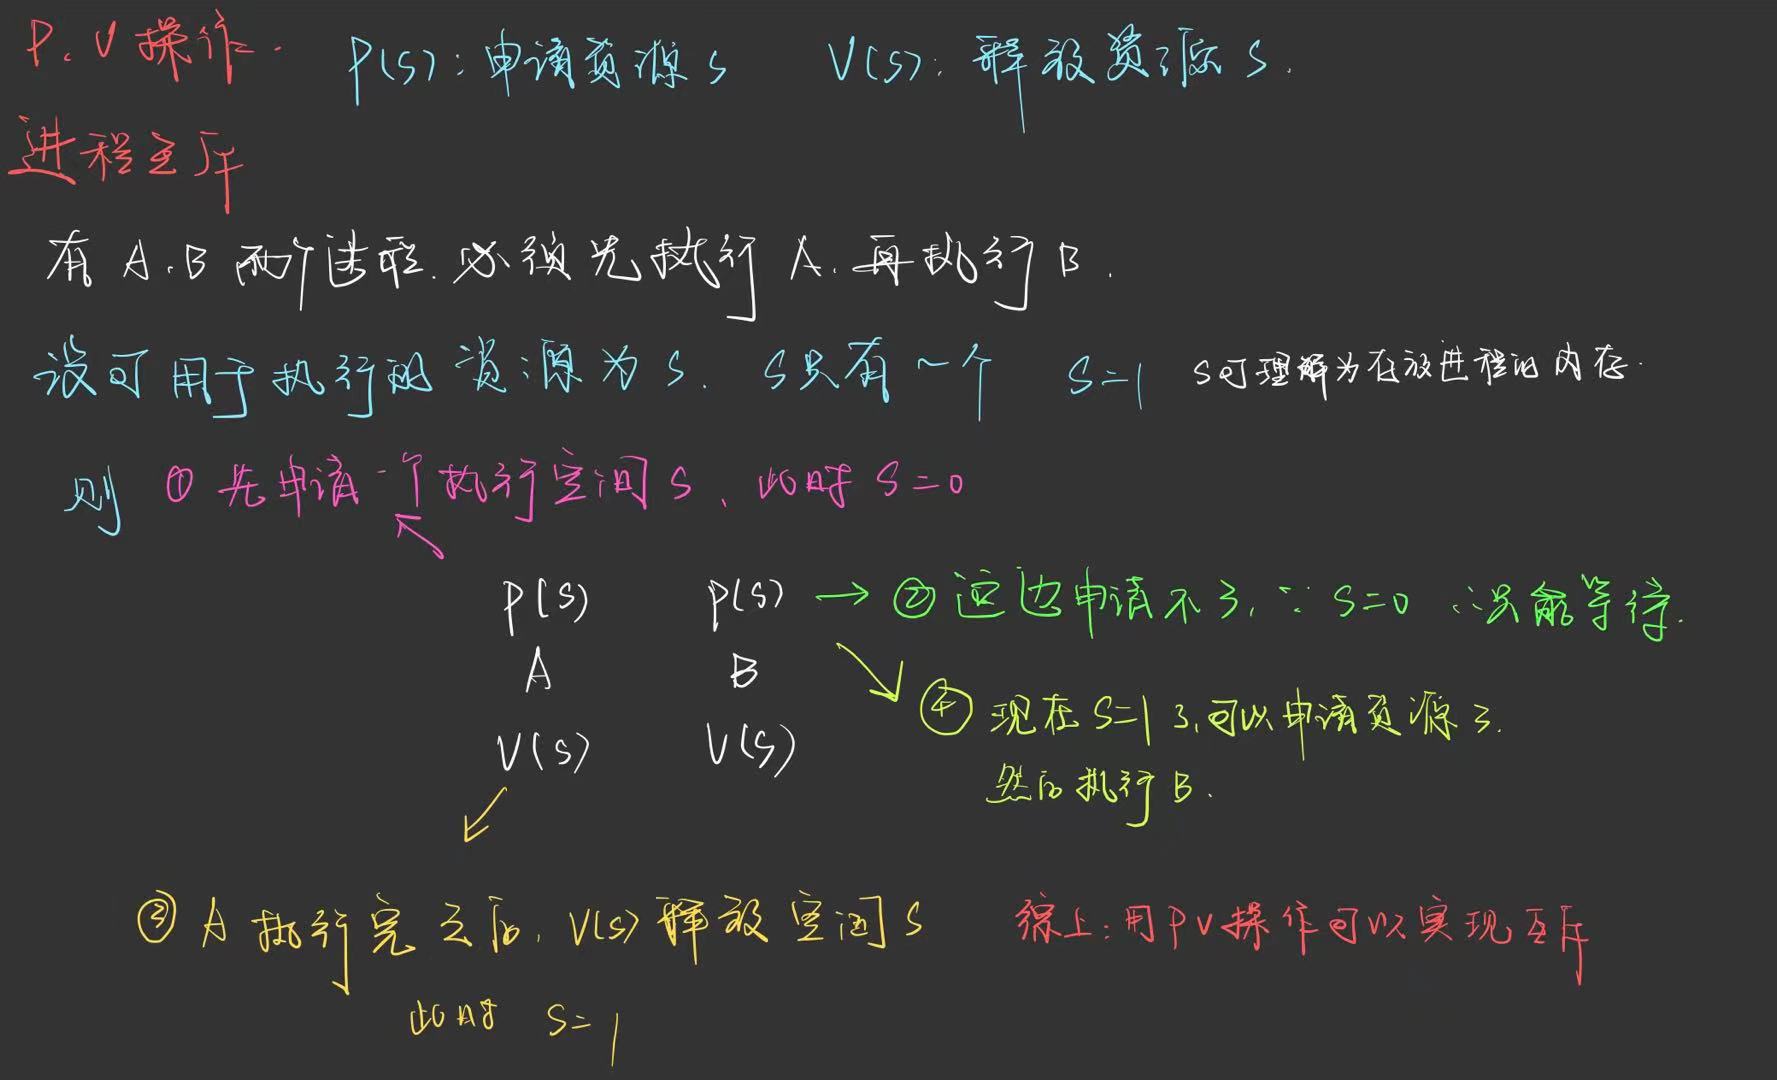 P.V操作.
P(S):申请资源S V(S):释放资源S.
进程互斥
有A.B两个进程.必须先执行A.再执行B.
设可用于执行的资源为S. S只有一个 S=1 S可理解为存放进程的内存.
则 ①先申请一个执行空间S,此时S=0
P(S) P(S) → ②这边申请不了,∵S=0 ∴只能等待.
A B
④现在S=1了,可以申请资源了.
V(S) V(S)
然后执行B.
③A执行完之后,V(S)释放空间S 综上:用PV操作可以实现互斥
此时 S=1